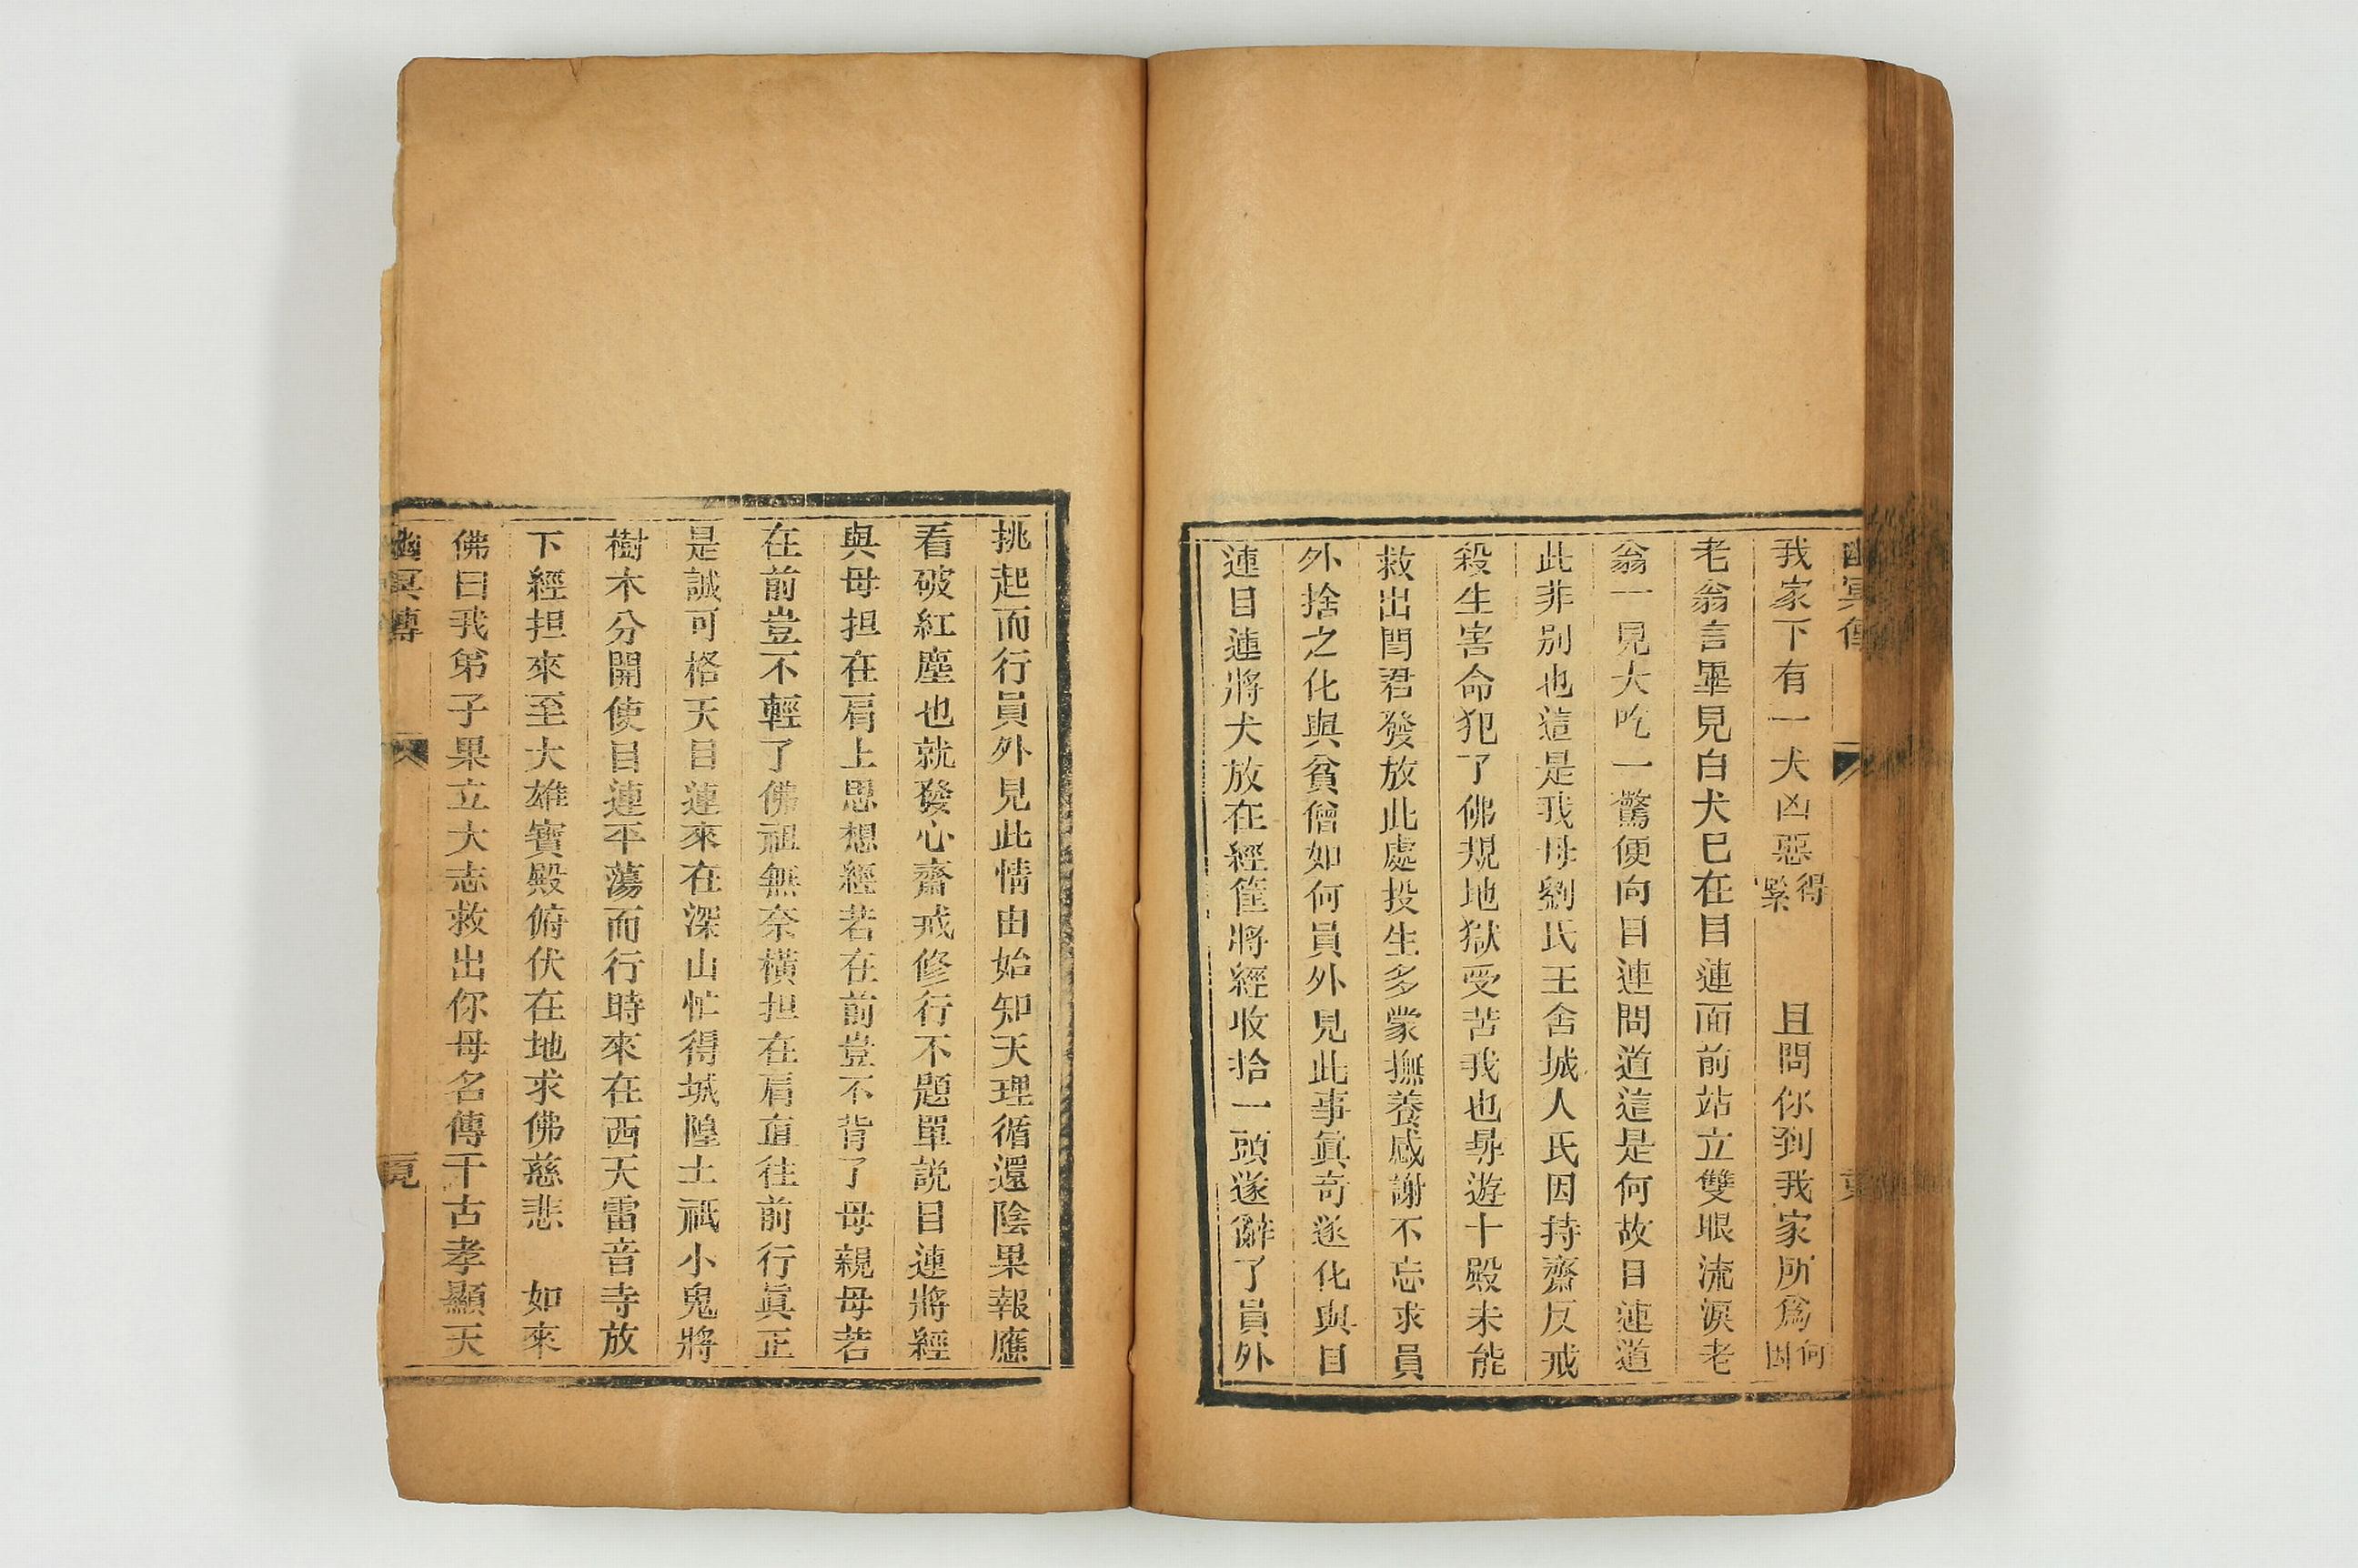 幽冥傳
我家下有一犬凶惡得緊 且問你到我家所爲何因
老翁言畢見白犬巳在目蓮面前站立雙眼流淚老
翁一見大吃一驚便向目連問道這是何故目連道
此非别也這是我母劉氏王舍城人氏因持齋反戒
殺生害命犯了佛規地獄受苦我也尋遊十殿未能
救出閆君發放此處投生多蒙撫養感謝不忘求員
外捨之化與貧僧如何員外見此事眞奇遂化與目
連目蓮將犬放在經筐將經收拾一頭遂辭了員外
挑起而行員外見此情由始知天理循還陰果報應
看破紅塵也就發心齋戒修行不題單説目連將經
與母担在肩上思想經若在前豈不背了母親母若
在前豈不輕了佛祖無奈橫担在肩直往前行眞正
是誠可格天目連來在深山忙得城隍土祇小鬼將
樹木分開使目連平蕩而行時來在西天雷音寺放
下經担來至大雄寳殿俯伏在地求佛慈悲 如來
佛曰我弟子果立大志救出你母名傳千古孝顯天
幽冥傳